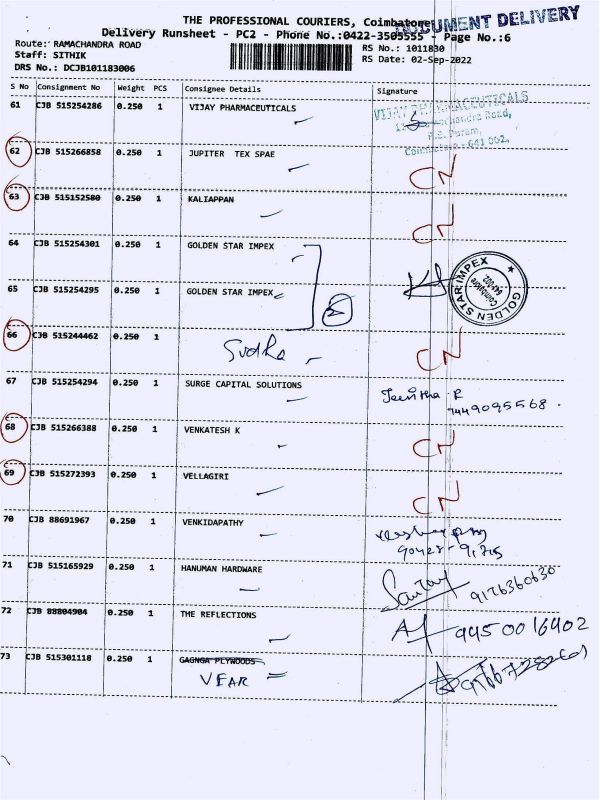 THE PROFESSIONAL COURIERS, Coimbatore
DOCUMENT DELIVERY
Delivery Runsheet - PC2 - Phone No.:0422-3505555 - Page No.:6
Route: RAMACHANDRA ROAD
RS No.: 1011830
Staff: SITHIK
RS Date: 02-Sep-2022
DRS No.: DCJB101183006
S No Consignment No Weight PCS Consignee Details Signature
61 CJB 515254286 0.250 1 VIJAY PHARMACEUTICALS
VIJAY PHARMACEUTICALS
Ramachandra Road,
R.S. Puram,
Coimbatore - 641 002.
62 CJB 515266858 0.250 1 JUPITER TEX SPAE CN
63 CJB 515152580 0.250 1 KALIAPPAN CN
64 CJB 515254301 0.250 1 GOLDEN STAR IMPEX
65 CJB 515254295 0.250 1 GOLDEN STAR IMPEX
2
GOLDEN STAR IMPEX
Coimbatore
641 002
66 CJB 515244462 0.250 1 Sudha CN
67 CJB 515254294 0.250 1 SURGE CAPITAL SOLUTIONS
9449095568.
68 CJB 515266388 0.250 1 VENKATESH K CN
69 CJB 515272393 0.250 1 VELLAGIRI CN
70 CJB 88691967 0.250 1 VENKIDAPATHY
71 CJB 515165929 0.250 1 HANUMAN HARDWARE
9176360630
72 CJB 88804904 0.250 1 THE REFLECTIONS
9450016402
73 CJB 515301118 0.250 1 GAGNGA PLYWOODS
VEAR